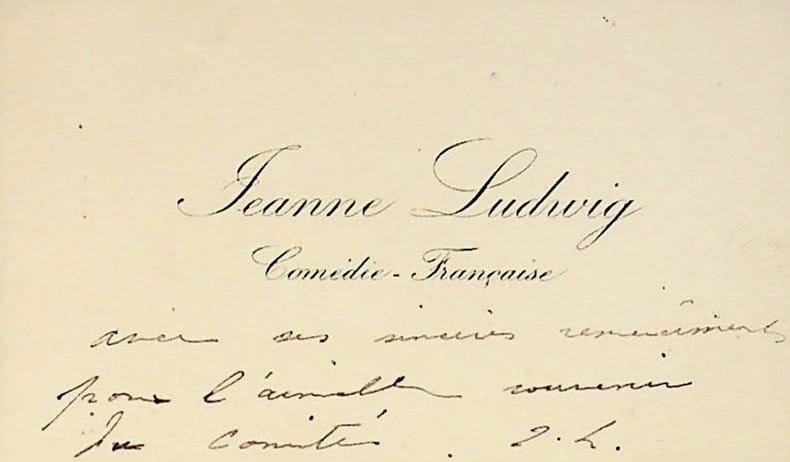 Jeanne Ludwig
Comédie-Française
avec ses sincères remerciements
pour l'aimable souvenir
du Comité. J. L.